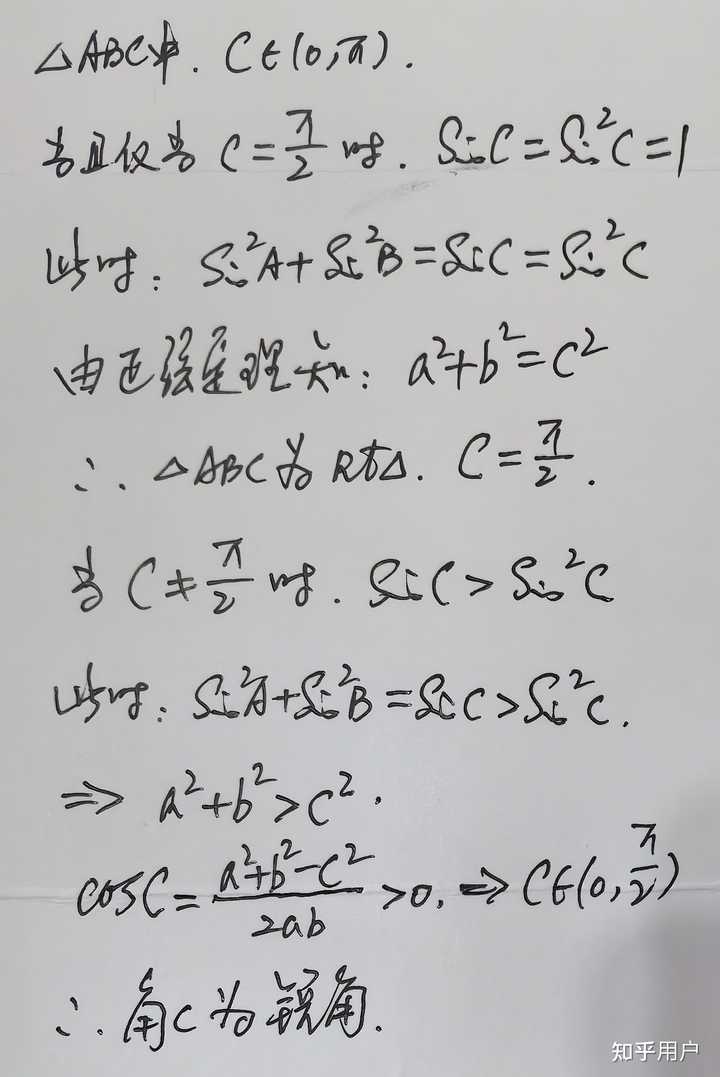 △ABC中. C∈(0,π).
当且仅当 C=π/2 时. SinC=Sin²C=1
此时: Sin²A+Sin²B=SinC=Sin²C
由正弦定理知: a²+b²=c²
∴ △ABC为Rt△. C=π/2.
当 C≠π/2 时. SinC>Sin²C
此时: Sin²A+Sin²B=SinC>Sin²C.
⇒ a²+b²>c².
cosC=(a²+b²-c²)/2ab>0. ⇒ C∈(0,π/2)
∴ 角C为锐角.
知乎用户